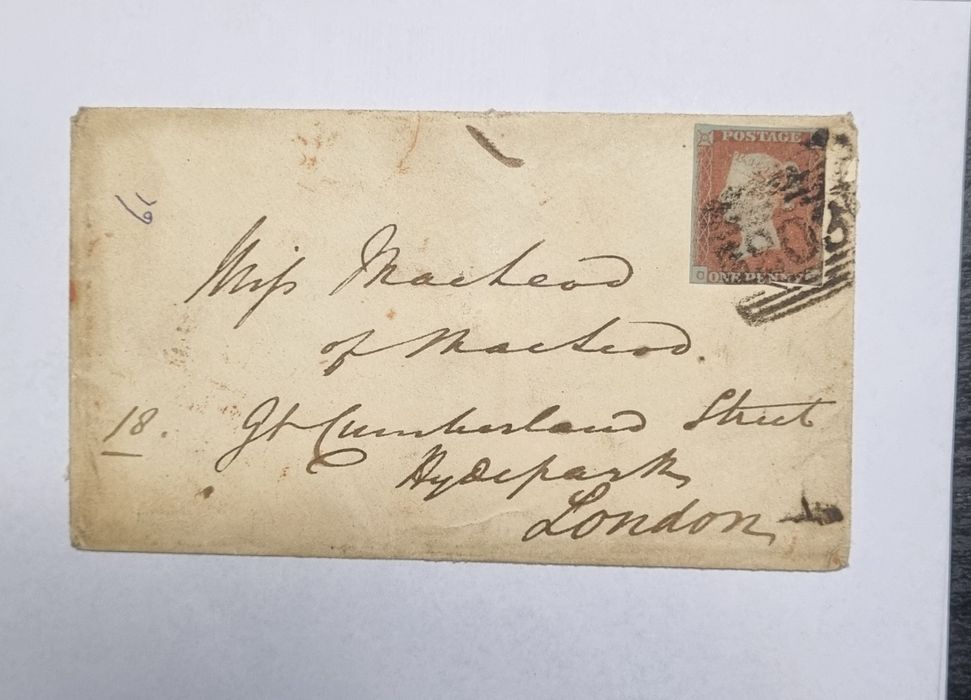 POSTAGE
ONE PENNY
19
Miss MacLeod
of MacLeod.
18. Gt Cumberland Street
Hydepark
London